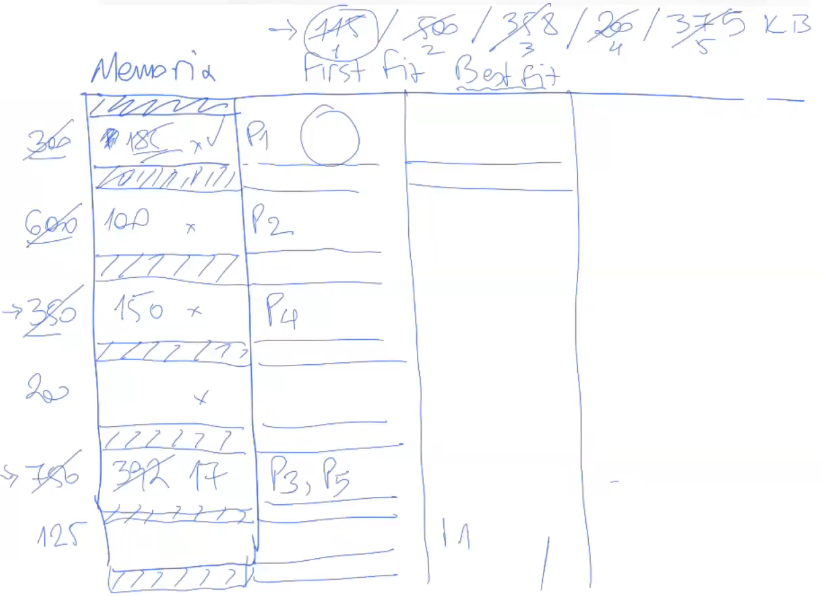 → 115 / 500 / 358 / 200 / 375 KB
1 2 3 4 5
Memoria First Fit Best fit
300 185 x ✓ P1
600 100 x P2
→ 350 150 x P4
200 x
→ 750 392 17 P3, P5
125